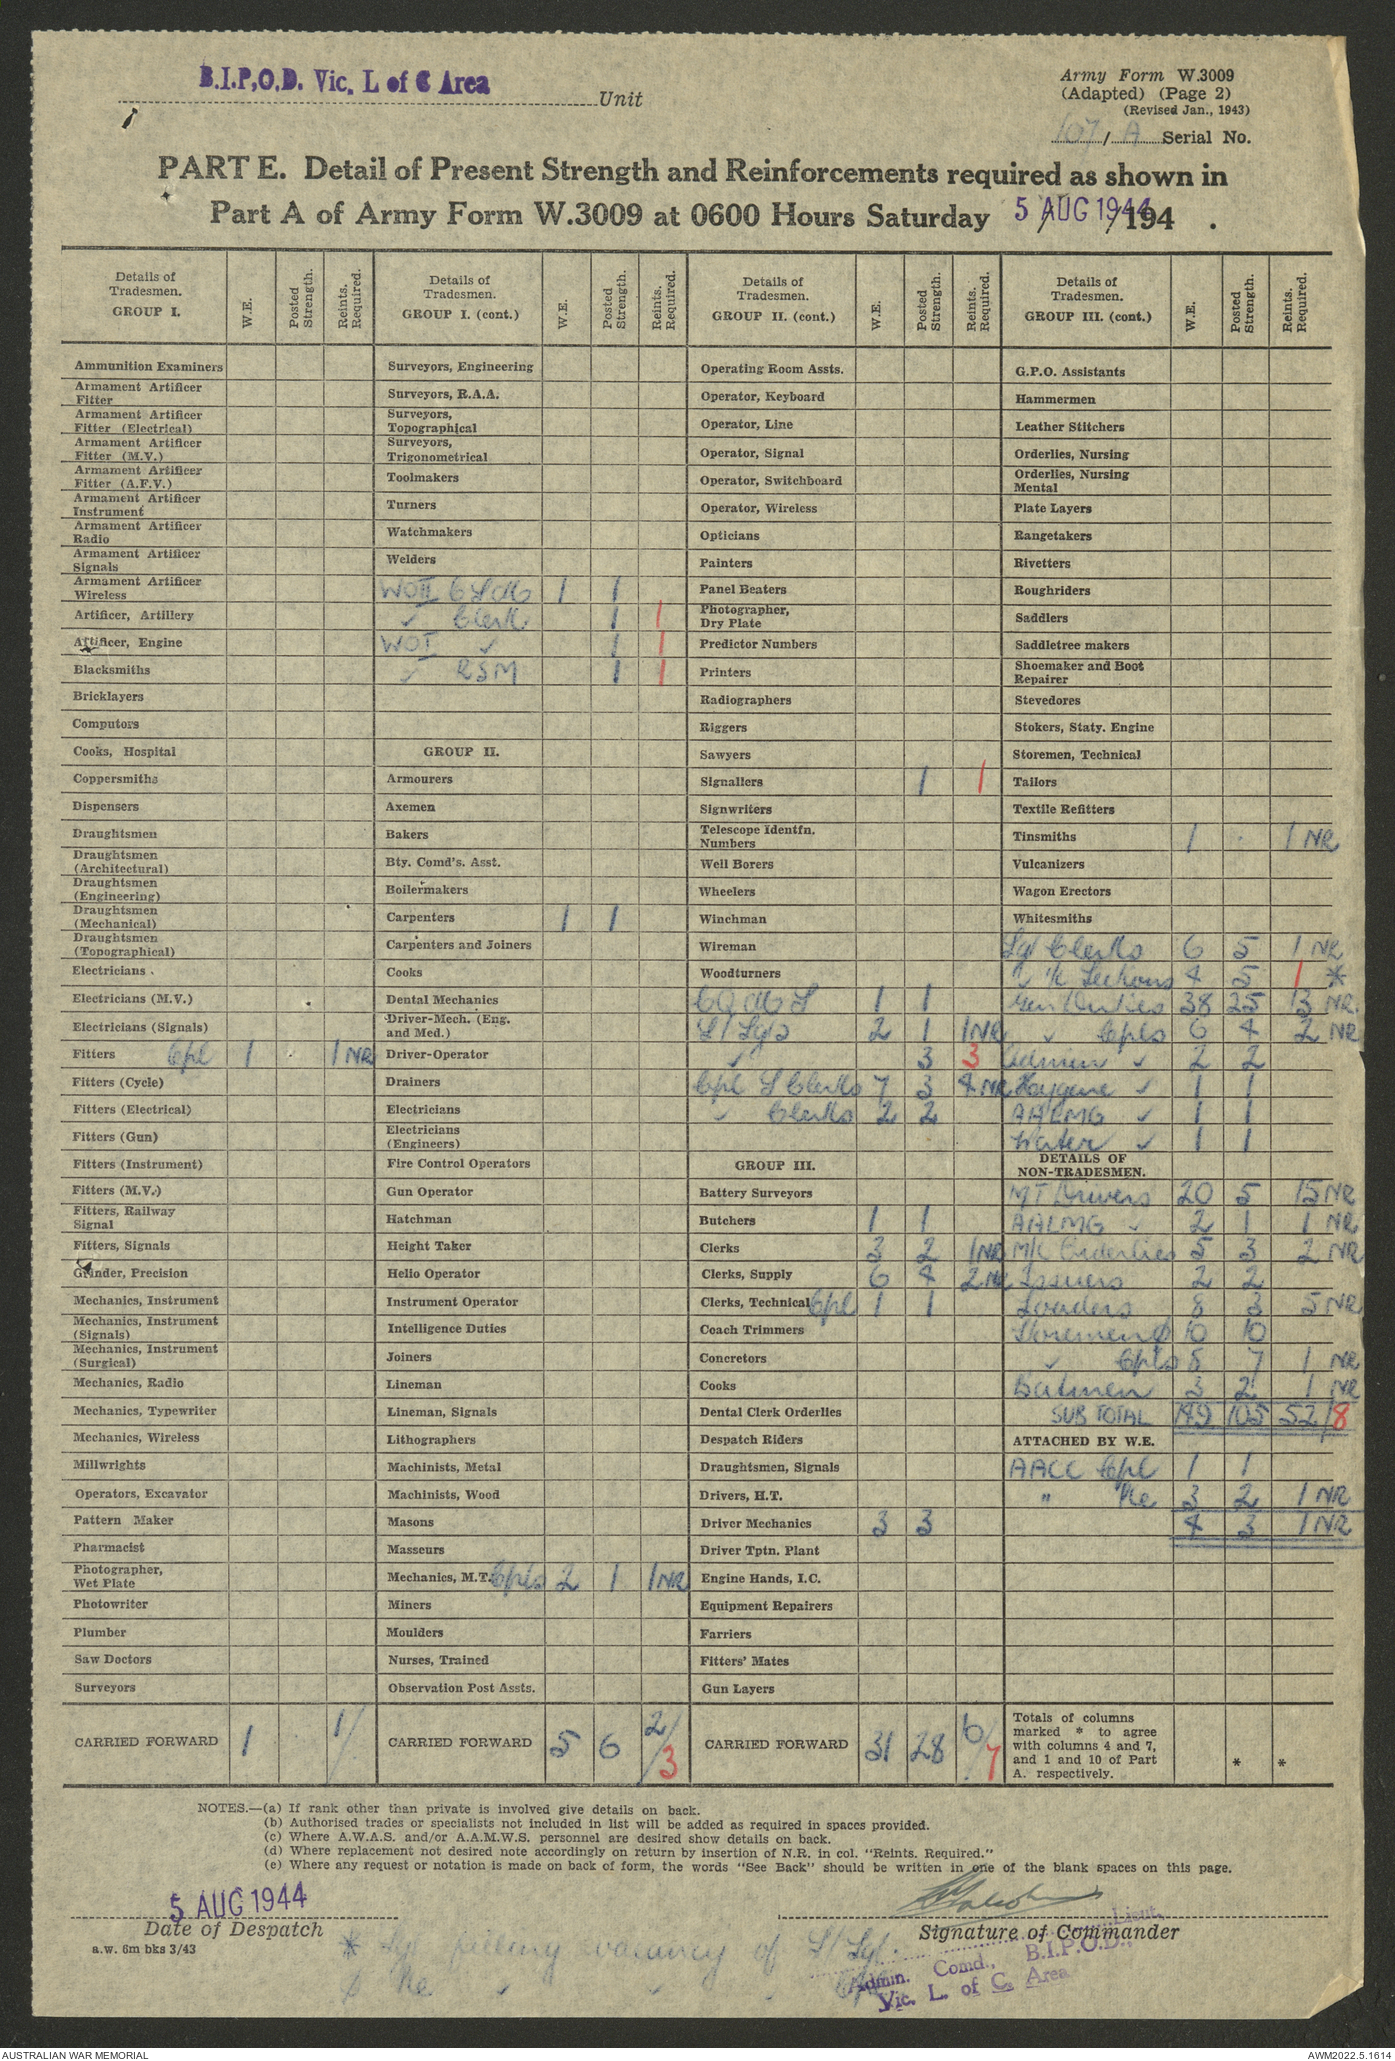 B.I.P.O.D. Vic. L of C Area
Unit
Army Form W.3009
(Adapted) (Page 2)
(Revised Jan., 1943)
107/A Serial No.
PART E. Detail of Present Strength and Reinforcements required as shown in
Part A of Army Form W.3009 at 0600 Hours Saturday 5 AUG 1944 /194 .
Details of Tradesmen. GROUP I. W.E. Posted Strength. Reints. Required.
Ammunition Examiners
Armament Artificer Fitter
Armament Artificer Fitter (Electrical)
Armament Artificer Fitter (M.V.)
Armament Artificer Fitter (A.F.V.)
Armament Artificer Instrument
Armament Artificer Radio
Armament Artificer Signals
Armament Artificer Wireless
Artificer, Artillery
Artificer, Engine
Blacksmiths
Bricklayers
Computors
Cooks, Hospital
Coppersmiths
Dispensers
Draughtsmen
Draughtsmen (Architectural)
Draughtsmen (Engineering)
Draughtsmen (Mechanical)
Draughtsmen (Topographical)
Electricians
Electricians (M.V.)
Electricians (Signals)
Fitters Cpl 1 . 1 NR
Fitters (Cycle)
Fitters (Electrical)
Fitters (Gun)
Fitters (Instrument)
Fitters (M.V.)
Fitters, Railway Signal
Fitters, Signals
Grinder, Precision
Mechanics, Instrument
Mechanics, Instrument (Signals)
Mechanics, Instrument (Surgical)
Mechanics, Radio
Mechanics, Typewriter
Mechanics, Wireless
Millwrights
Operators, Excavator
Pattern Maker
Pharmacist
Photographer, Wet Plate
Photowriter
Plumber
Saw Doctors
Surveyors
CARRIED FORWARD 1 . 1/
Details of Tradesmen. GROUP I. (cont.) W.E. Posted Strength. Reints. Required.
Surveyors, Engineering
Surveyors, R.A.A.
Surveyors, Topographical
Surveyors, Trigonometrical
Toolmakers
Turners
Watchmakers
Welders
WOII 1 1
✓ Clerk 1 1
WOI ✓ 1 1
✓ RSM 1 1
GROUP II.
Armourers
Axemen
Bakers
Bty. Comd's. Asst.
Boilermakers
Carpenters 1 1
Carpenters and Joiners
Cooks
Dental Mechanics
Driver-Mech. (Eng. and Med.)
Driver-Operator
Drainers
Electricians
Electricians (Engineers)
Fire Control Operators
Gun Operator
Hatchman
Height Taker
Helio Operator
Instrument Operator
Intelligence Duties
Joiners
Lineman
Lineman, Signals
Lithographers
Machinists, Metal
Machinists, Wood
Masons
Masseurs
Mechanics, M.T. Cpls 2 1 1 NR
Miners
Moulders
Nurses, Trained
Observation Post Assts.
CARRIED FORWARD 5 6 2/3
Details of Tradesmen. GROUP II. (cont.) W.E. Posted Strength. Reints. Required.
Operating Room Assts.
Operator, Keyboard
Operator, Line
Operator, Signal
Operator, Switchboard
Operator, Wireless
Opticians
Painters
Panel Beaters
Photographer, Dry Plate
Predictor Numbers
Printers
Radiographers
Riggers
Sawyers
Signallers 1 1
Signwriters
Telescope Identfn. Numbers
Well Borers
Wheelers
Winchman
Wireman
Woodturners
CQMS 1 1
S/Sgs 2 1 1 NR
✓ 3 3
Cpl S Clerks 7 3 4 NR
✓ Clerks 2 2
GROUP III.
Battery Surveyors
Butchers 1 1
Clerks 3 2 1 NR
Clerks, Supply 6 4 2 NR
Clerks, Technical Cpl 1 1
Coach Trimmers
Concretors
Cooks
Dental Clerk Orderlies
Despatch Riders
Draughtsmen, Signals
Drivers, H.T.
Driver Mechanics 3 3
Driver Tptn. Plant
Engine Hands, I.C.
Equipment Repairers
Farriers
Fitters' Mates
Gun Layers
CARRIED FORWARD 31 28 6/7
Details of Tradesmen. GROUP III. (cont.) W.E. Posted Strength. Reints. Required.
G.P.O. Assistants
Hammermen
Leather Stitchers
Orderlies, Nursing
Orderlies, Nursing Mental
Plate Layers
Rangetakers
Rivetters
Roughriders
Saddlers
Saddletree makers
Shoemaker and Boot Repairer
Stevedores
Stokers, Staty. Engine
Storemen, Technical
Tailors
Textile Refitters
Tinsmiths 1 . 1 NR
Vulcanizers
Wagon Erectors
Whitesmiths
Sgt Clerks 6 5 1 NR
✓ IK Sections 4 5 1 *
Gen Duties 38 25 13 NR.
✓ Cpls 6 4 2 NR
Admin ✓ 2 2
Hygiene ✓ 1 1
AALMG ✓ 1 1
Water ✓ 1 1
DETAILS OF NON-TRADESMEN.
MT Drivers 20 5 15 NR
AALMG ✓ 2 1 1 NR
M/K Orderlies 5 3 2 NR
Issuers 2 2
Loaders 8 3 5 NR
Storemen ø 10 10
✓ Cpls 8 7 1 NR
Batmen 3 2 1 NR
SUB TOTAL 149 105 52/8
ATTACHED BY W.E.
AACC Cpl 1 1
" Pte 3 2 1 NR
4 3 1 NR
Totals of columns marked * to agree with columns 4 and 7, and 1 and 10 of Part A. respectively. * *
NOTES.—(a) If rank other than private is involved give details on back.
(b) Authorised trades or specialists not included in list will be added as required in spaces provided.
(c) Where A.W.A.S. and/or A.A.M.W.S. personnel are desired show details on back.
(d) Where replacement not desired note accordingly on return by insertion of N.R. in col. "Reints. Required."
(e) Where any request or notation is made on back of form, the words "See Back" should be written in one of the blank spaces on this page.
5 AUG 1944
Date of Despatch
a.w. 6m bks 3/43
Signature of Commander
Lieut.
Admin. Comd., B.I.P.O.D.,
Vic. L. of C. Area
* Sgt filling vacancy of S/Sgt.
ø Pte ✓ ✓ Cpl
AUSTRALIAN WAR MEMORIAL
AWM2022.5.1614